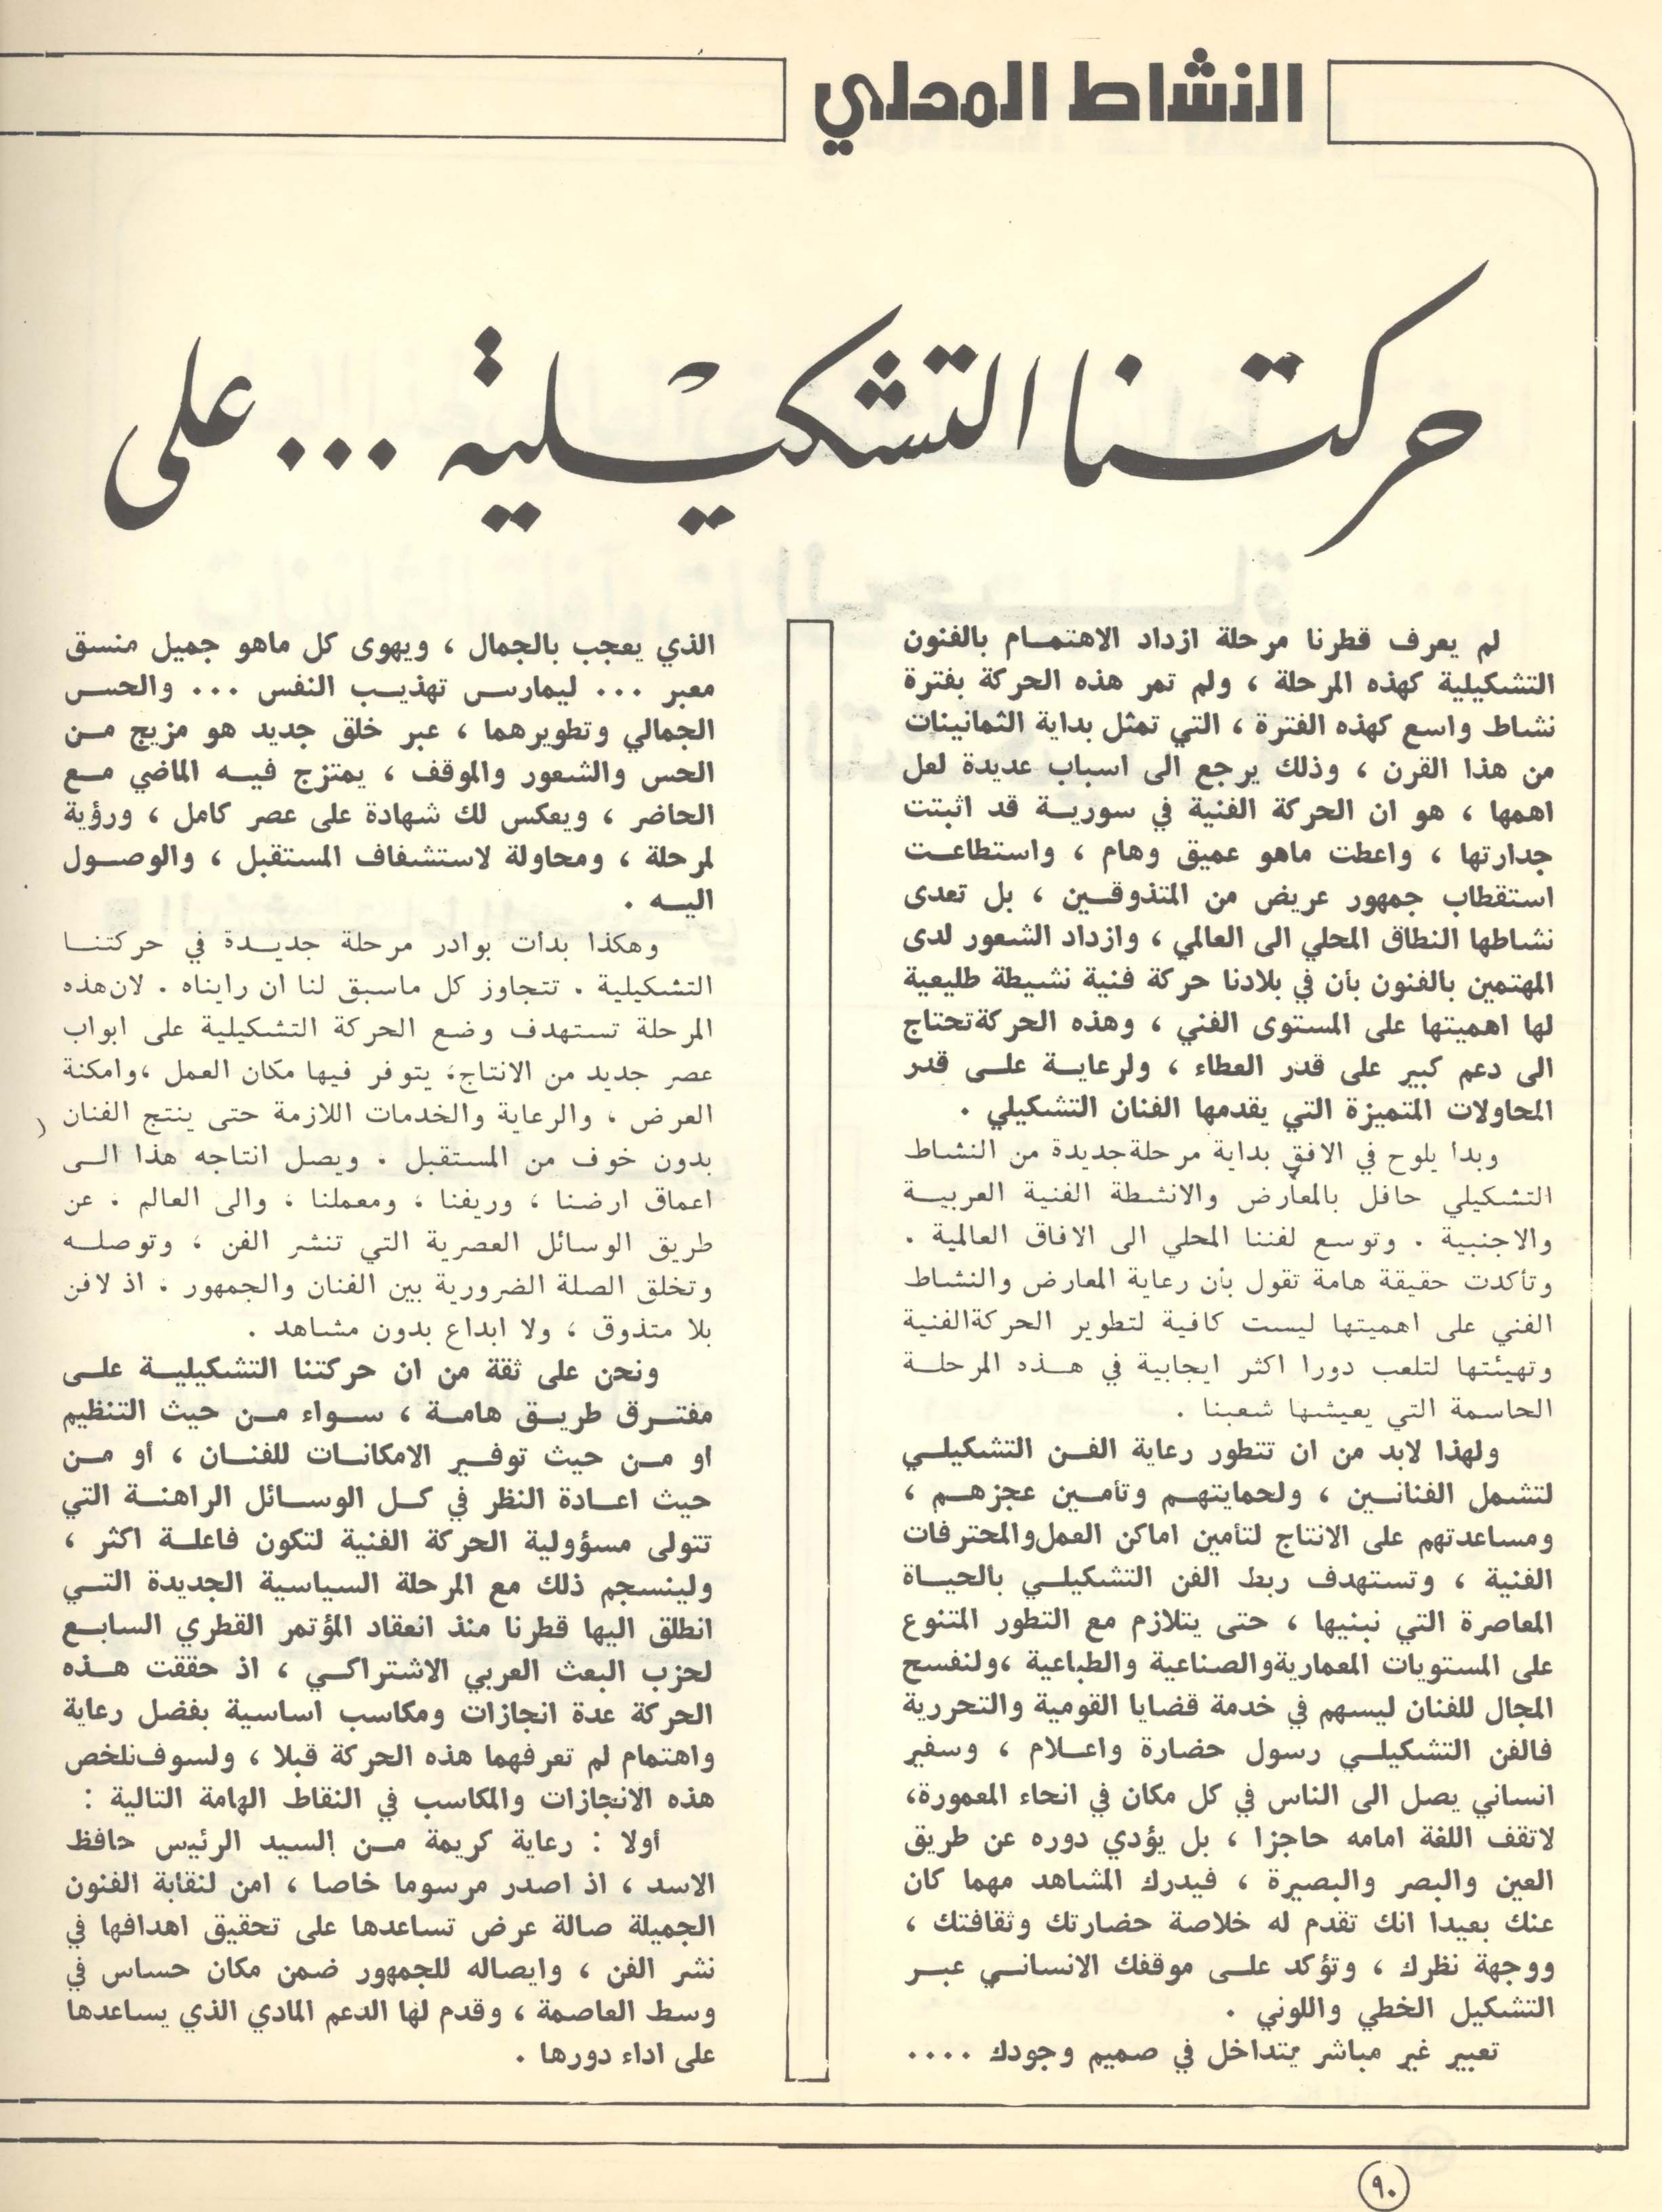 النشاط المحلي
حركتنا التشكيلية ... على
لم يعرف قطرنا مرحلة ازداد الاهتمام بالفنون
التشكيلية كهذه المرحلة ، ولم تمر هذه الحركة بفترة
نشاط واسع كهذه الفترة ، التي تمثل بداية الثمانينات
من هذا القرن ، وذلك يرجع الى اسباب عديدة لعل
اهمها ، هو ان الحركة الفنية في سورية قد اثبتت
جدارتها ، واعطت ماهو عميق وهام ، واستطاعت
استقطاب جمهور عريض من المتذوقين ، بل تعدى
نشاطها النطاق المحلي الى العالمي ، وازداد الشعور لدى
المهتمين بالفنون بأن في بلادنا حركة فنية نشيطة طليعية
لها اهميتها على المستوى الفني ، وهذه الحركة تحتاج
الى دعم كبير على قدر العطاء ، ولرعاية على قدر
المحاولات المتميزة التي يقدمها الفنان التشكيلي .
وبدا يلوح في الافق بداية مرحلة جديدة من النشاط
التشكيلي حافل بالمعارض والانشطة الفنية العربية
والاجنبية . وتوسع لفننا المحلي الى الافاق العالمية .
وتأكدت حقيقة هامة تقول بأن رعاية المعارض والنشاط
الفني على اهميتها ليست كافية لتطوير الحركة الفنية
وتهيئتها لتلعب دورا اكثر ايجابية في هذه المرحلة
الحاسمة التي يعيشها شعبنا .
ولهذا لابد من ان تتطور رعاية الفن التشكيلي
لتشمل الفنانين ، ولحمايتهم وتأمين عجزهم ،
ومساعدتهم على الانتاج لتأمين اماكن العمل والمحترفات
الفنية ، وتستهدف ربط الفن التشكيلي بالحياة
المعاصرة التي نبنيها ، حتى يتلازم مع التطور المتنوع
على المستويات المعمارية والصناعية والطباعية ، ولنفسح
المجال للفنان ليسهم في خدمة قضايا القومية والتحررية
فالفن التشكيلي رسول حضارة واعلام ، وسفير
انساني يصل الى الناس في كل مكان في انحاء المعمورة،
لاتقف اللغة امامه حاجزا ، بل يؤدي دوره عن طريق
العين والبصر والبصيرة ، فيدرك المشاهد مهما كان
عنك بعيدا انك تقدم له خلاصة حضارتك وثقافتك ،
ووجهة نظرك ، وتؤكد على موقفك الانساني عبر
التشكيل الخطي واللوني .
تعبير غير مباشر يتداخل في صميم وجودك ....
الذي يعجب بالجمال ، ويهوى كل ماهو جميل منسق
معبر ... ليمارس تهذيب النفس ... والحس
الجمالي وتطويرهما ، عبر خلق جديد هو مزيج من
الحس والشعور والموقف ، يمتزج فيه الماضي مع
الحاضر ، ويعكس لك شهادة على عصر كامل ، ورؤية
لمرحلة ، ومحاولة لاستشفاف المستقبل ، والوصول
اليه .
وهكذا بدأت بوادر مرحلة جديدة في حركتنا
التشكيلية . تتجاوز كل ماسبق لنا ان رايناه . لان هذه
المرحلة تستهدف وضع الحركة التشكيلية على ابواب
عصر جديد من الانتاج، يتوفر فيها مكان العمل ،وامكنة
العرض ، والرعاية والخدمات اللازمة حتى ينتج الفنان
بدون خوف من المستقبل . ويصل انتاجه هذا الى
اعماق ارضنا ، وريفنا ، ومعملنا ، والى العالم . عن
طريق الوسائل العصرية التي تنشر الفن ، وتوصله
وتخلق الصلة الضرورية بين الفنان والجمهور . اذ لافن
بلا متذوق ، ولا ابداع بدون مشاهد .
ونحن على ثقة من ان حركتنا التشكيلية على
مفترق طريق هامة ، سواء من حيث التنظيم
او من حيث توفير الامكانات للفنان ، أو من
حيث اعادة النظر في كل الوسائل الراهنة التي
تتولى مسؤولية الحركة الفنية لتكون فاعلة اكثر ،
ولينسجم ذلك مع المرحلة السياسية الجديدة التي
انطلق اليها قطرنا منذ انعقاد المؤتمر القطري السابع
لحزب البعث العربي الاشتراكي ، اذ حققت هذه
الحركة عدة انجازات ومكاسب اساسية بفضل رعاية
واهتمام لم تعرفهما هذه الحركة قبلا ، ولسوف نلخص
هذه الانجازات والمكاسب في النقاط الهامة التالية :
أولا : رعاية كريمة من السيد الرئيس حافظ
الاسد ، اذ اصدر مرسوما خاصا ، امن لنقابة الفنون
الجميلة صالة عرض تساعدها على تحقيق اهدافها في
نشر الفن ، وايصاله للجمهور ضمن مكان حساس في
وسط العاصمة ، وقدم لها الدعم المادي الذي يساعدها
على اداء دورها .
٩٠